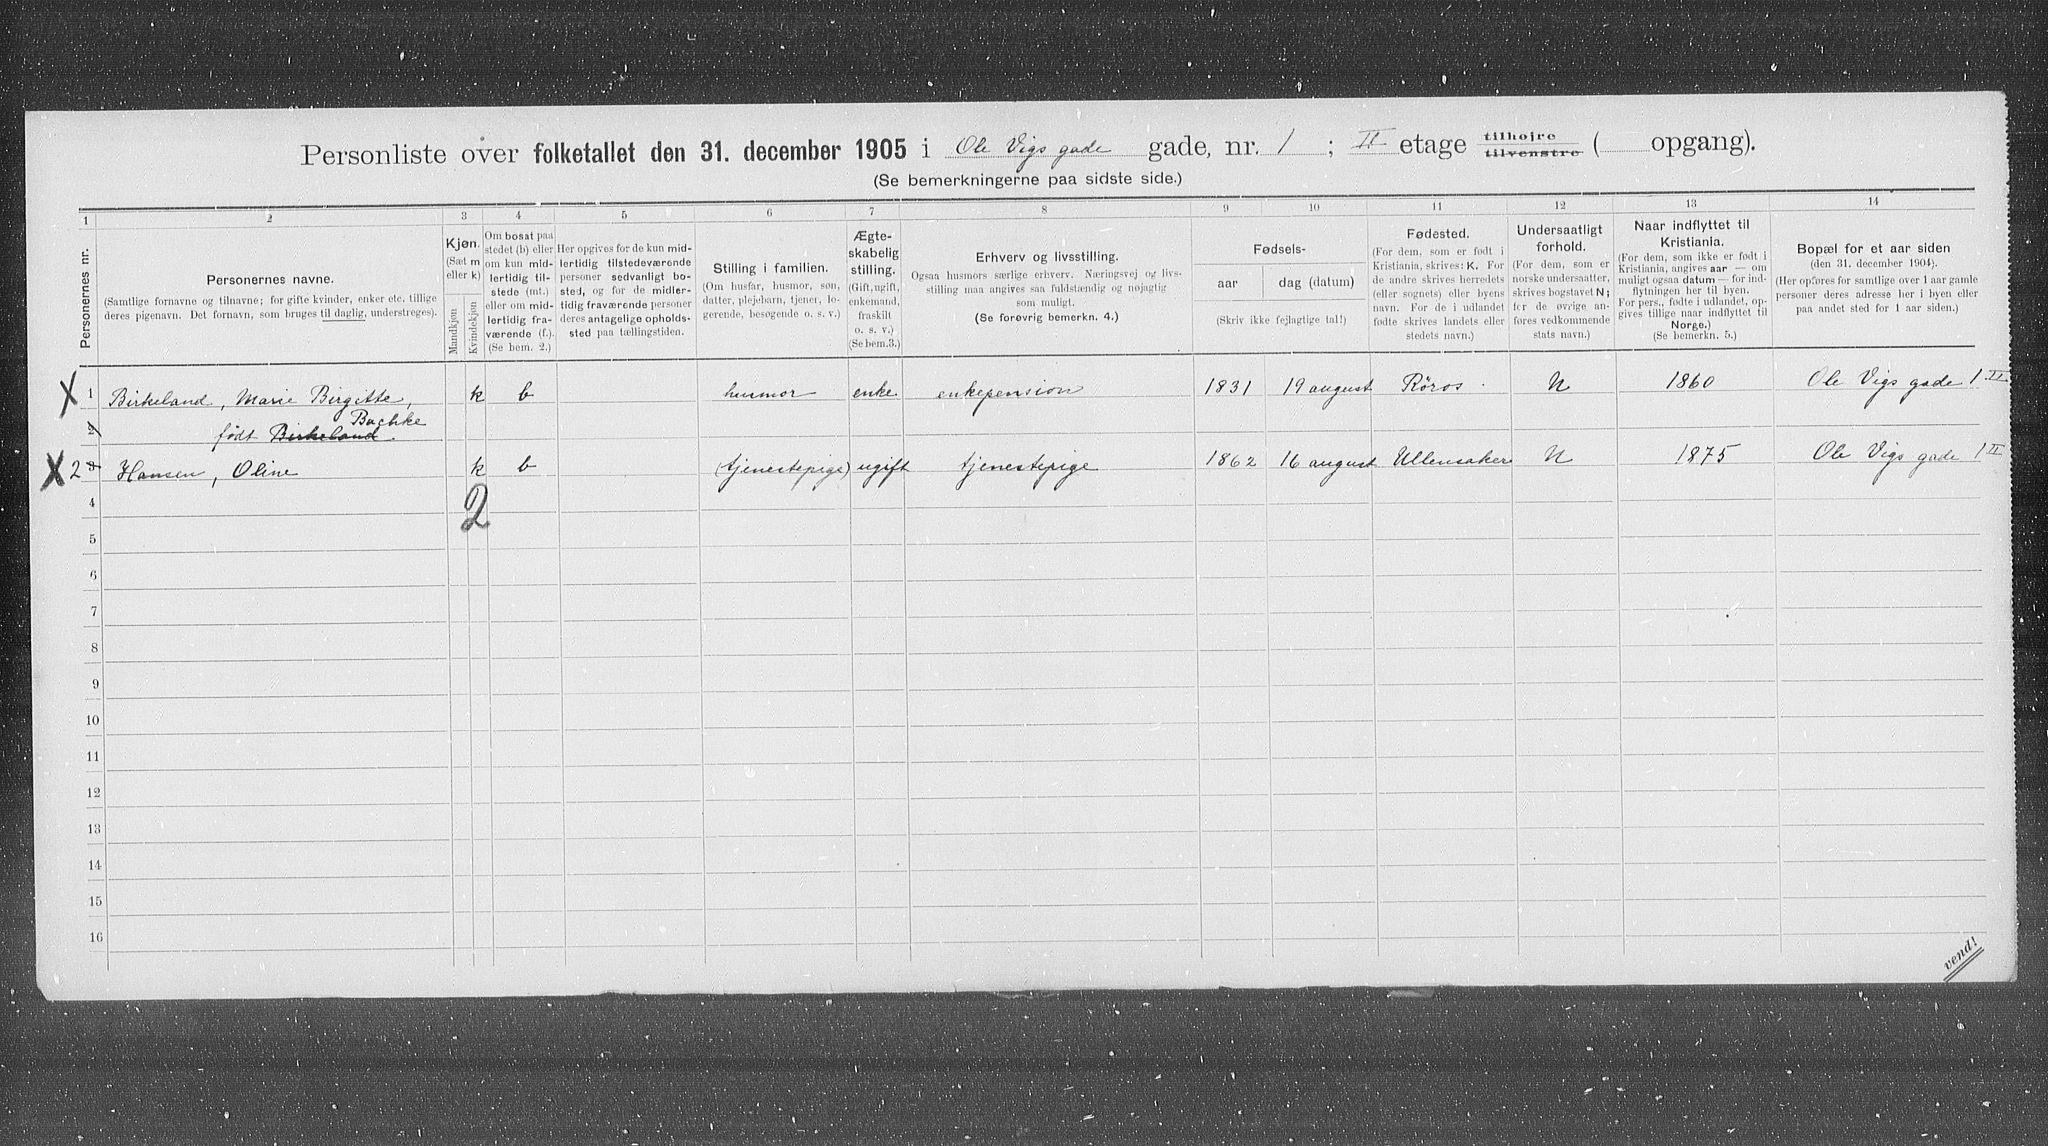 Personliste over folketallet den 31. december 1905 i Ole Vigs gade gade, nr. 1 ; II etage tilhøjre tilvenstre ( opgang).
(Se bemerkningerne paa sidste side.)
1 2 3 4 5 6 7 8 9 10 11 12 13 14
Personernes nr.
Personernes navne.
(Samtlige fornavne og tilnavne; for gifte kvinder, enker etc. tillige
deres pigenavn. Det fornavn, som bruges til daglig, understreges).
Kjøn.
(Sæt m
eller k)
Mandkjøn
Kvindekjøn
Om bosat paa
stedet (b) eller
om kun mid-
lertidig til-
stede (mt.)
eller om mid-
lertidig fra-
værende (f.).
(Se bem. 2.)
Her opgives for de kun mid-
lertidig tilstedeværende
personer sedvanligt bo-
sted, og for de midler-
tidig fraværende personer
deres antagelige opholds-
sted paa tællingstiden.
Stilling i familien.
(Om husfar, husmor, søn,
datter, plejebarn, tjener, lo-
gerende, besøgende o. s. v.)
Ægte-
skabelig
stilling.
(Gift, ugift,
enkemand,
fraskilt
o. s. v.)
(Se bem.3.)
Erhverv og livsstilling.
Ogsaa husmors særlige erhverv. Næringsvej og livs-
stilling maa angives saa fuldstændig og nøjagtig
som muligt.
(Se forøvrig bemerkn. 4.)
Fødsels-
aar
dag (datum)
(Skriv ikke fejlagtige tal!)
Fødested.
(For dem, som er født i
Kristiania, skrives: K. For
de andre skrives herredets
(eller sognets) eller byens
navn. For de i udlandet
fødte skrives landets eller
stedets navn.)
Undersaatligt
forhold.
(For dem, som er
norske undersaatter,
skrives bogstavet N;
for de øvrige an-
føres vedkommende
stats navn.)
Naar indflyttet til
Kristiania.
(For dem, som ikke er født i
Kristiania, angives aar — om
muligt ogsaa datum — for ind-
flytningen her til byen.
For pers., fødte i udlandet, op-
gives tillige naar indflyttet til
Norge.)
(Se bemerkn. 5.)
Bopæl for et aar siden
(den 31. december 1904).
(Her opføres for samtlige over 1 aar gamle
personer deres adresse her i byen eller
paa andet sted for 1 aar siden.)
X 1 Birkeland, Marie Birgitte, k b husmor enke enkepension 1831 19 august Røros. N 1860 Ole Vigs gade 1 II
2 født Birkeland Bachke
X 2 3 Hansen, Oline k b (tjenestepige) ugift tjenestepige 1862 16 august Ullensaker N 1875 Ole Vigs gade 1 II
2
4
5
6
7
8
9
10
11
12
13
14
15
16
vend!